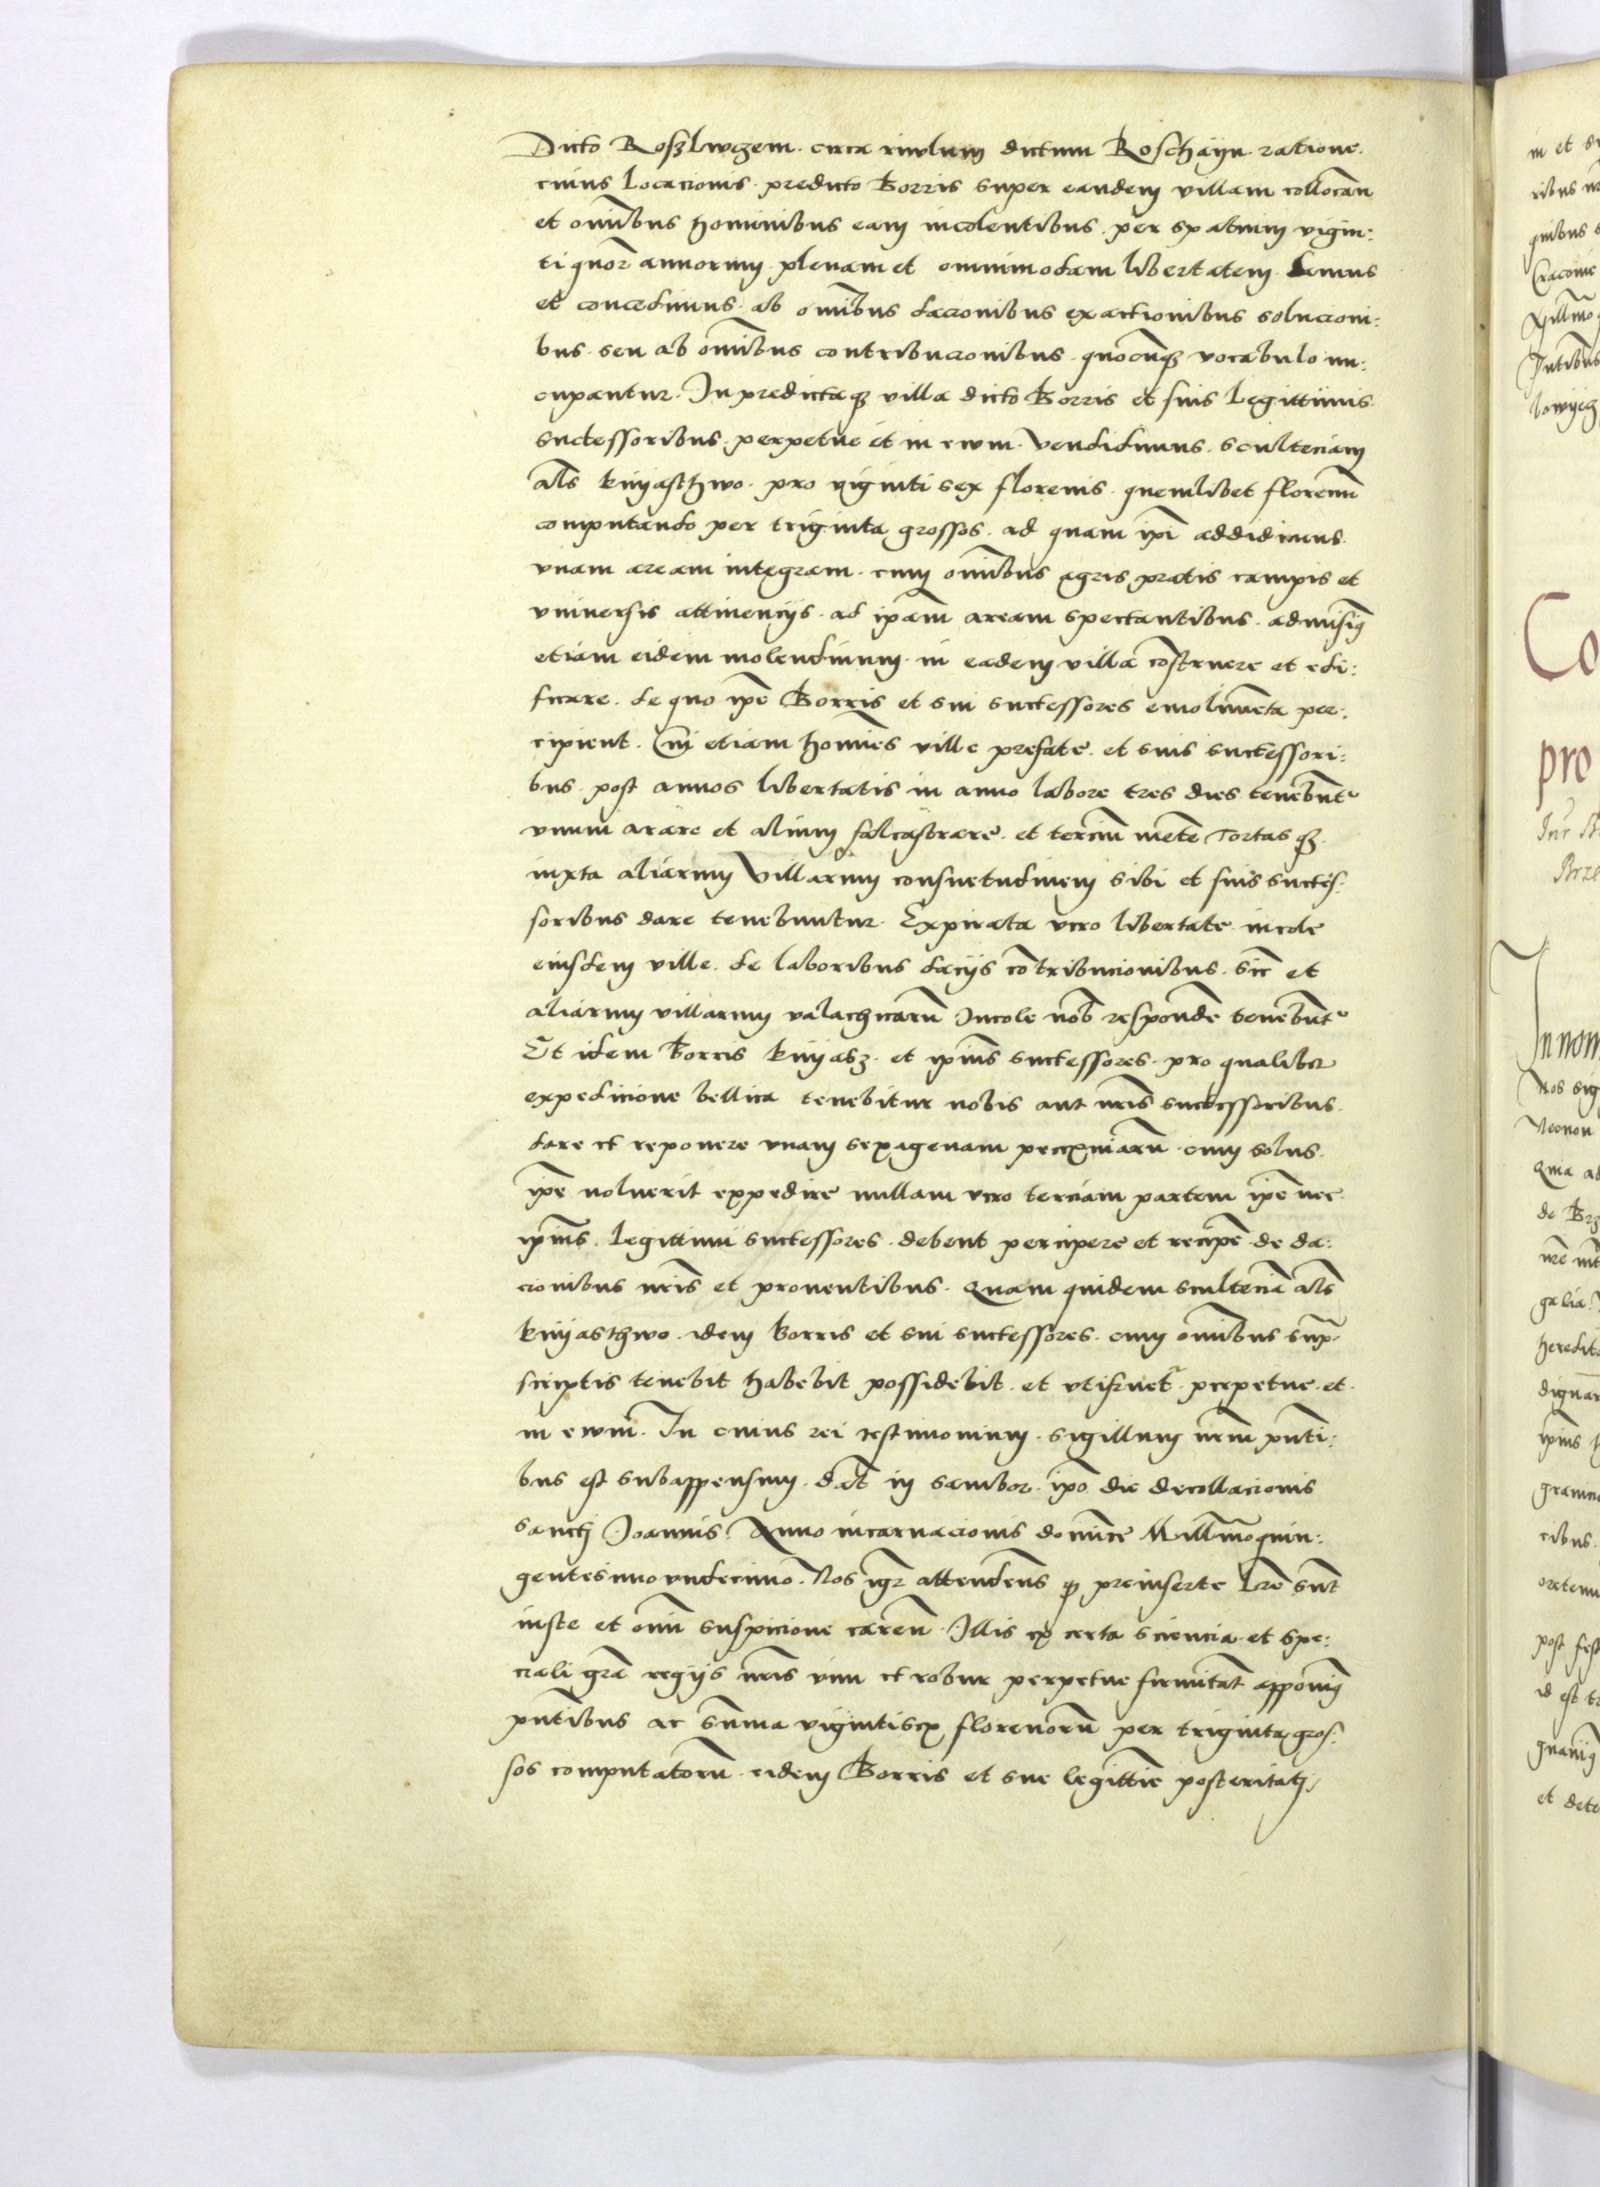 Dicto Roszlwgem. circa riwlum dictum Roschayn. ratione.
cuius locacionis. predicto Borris super eandem villam collocan̄
et om̄ibus hominibus eam incolentibus. per spatium vigin:
ti quor̄ annorum. plenam et omnimodam libertatem. damus
et concedimus. ab om̄ibus dacionibus exactionibus solucioni:
bus. seu ab om̄ibus contribucionibus. quocūqz vocabulo nu:
cupantur. In predictaqz villa dicto Borris et suis legittimis.
successoribus. perpetue et in ewm. Vendidimus. sculteciam
al̄s knyasthwo. pro viginti sex florenis. quemlibet florenū
computando per triginta grossos. ad quam ip̄i addidimus.
vnam aream integram. cum om̄ibus agris pratis campis et
vniuersis attinencijs. ad ip̄am aream spectantibus. admisimꝰ
etiam eidem molendinum. in eadem villa cōstruere et edi:
ficare. de quo ip̄e Borris et sui successores emolumēta per:
cipient. Cui etiam homīes ville prefate. et suis successori:
bus. post annos libertatis in anno labore tres dies tenebūtr
vnum arare et alium falcastrare. et tercium mete͂ Tortas qz.
iuxta aliarum Villarum consuetudinem sibi et suis succes:
soribus dare tenebuntur. Expirata vero libertate. incole
eiusdem ville. de laboribus dacijs cōtribucionibus. sic̄ et
aliarum villarum valachicarū Incole nob̄ respondē tenebūtr
Et idem Borris knyasz. et ipīus successores. pro qualibet
expedicione bellica tenebitur nobis aut nr̄is successoribus.
dare et reponere vnam sexagenam pecuniarū. cum solus.
ip̄e noluerit expedire nullam vero terciam partem ip̄e nec
ipīus. legittimi successores. debent percipere et recipē de da:
cionibus nr̄is et prouentibus. Quam quidem scultecia al̄s
knyasthwo. idem Borris et sui successores. cum om̄ibus sup̄.
scriptis tenebit habebit possidebit. et vtifruet͂ perpetue. et.
in ewm̄. In cuius rei testimonium. sigillum nr̄m pn̄ti:
bus est subappensum. Dat̄ in sambor. ip̄o die decollacionis
sancti Joannis. Anno incarnacionis domīce Mill̄mo quin:
gentesimo vndecimo. Nos igr̄ attendens qz preinserte Lr̄e sūt
iuste et om̄i suspicione caren̄. Illis ex certa sciencia. et spe:
ciali gr̄a regijs nr̄is vim et robur perpetue firmitat̄ apponimꝰ
pn̄tibus ac sūma vigintisex florenorū per triginta gros:
sos computatorū. eidem Borris et sue legittīe posteritati